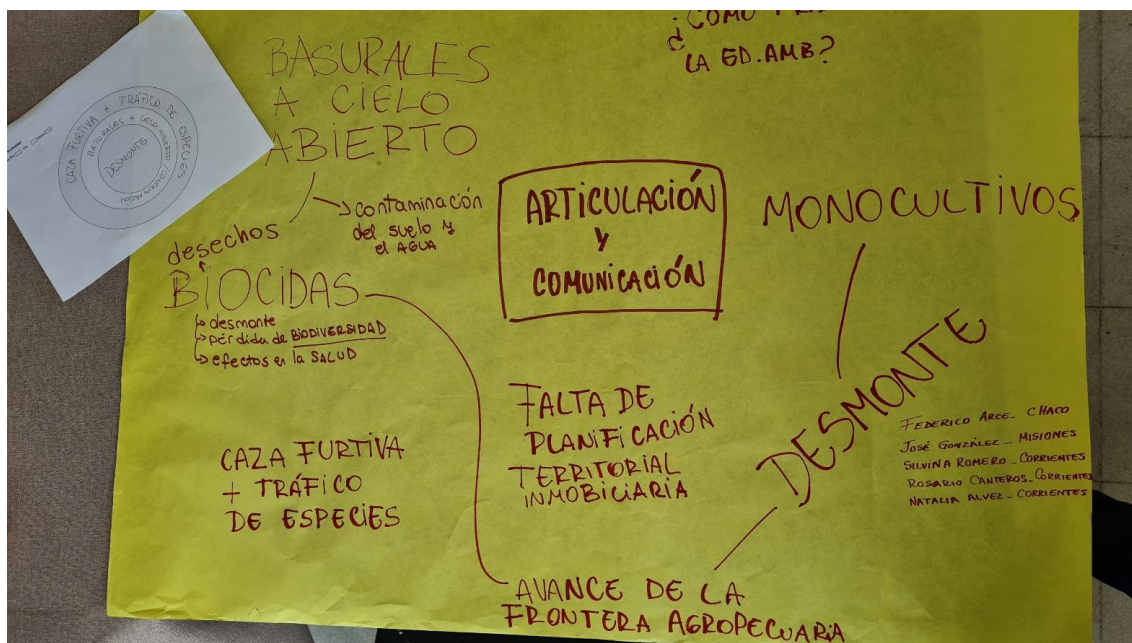 ¿COMO
LA ED. AMB?
BASURALES
A CIELO
ABIERTO
CAZA FURTIVA + TRÁFICO DE ESPECIES
BASURALES A CIELO ABIERTO / CONTAMINACIÓN
DESMONTE
desechos
contaminación
del suelo y
el AGUA
BIOCIDAS
desmonte
pérdida de BIODIVERSIDAD
efectos en la SALUD
ARTICULACIÓN
Y
COMUNICACIÓN
MONOCULTIVOS
DESMONTE
FALTA DE
PLANIFICACIÓN
TERRITORIAL
INMOBILIARIA
CAZA FURTIVA
+ TRÁFICO
DE ESPECIES
AVANCE DE LA
FRONTERA AGROPECUARIA
FEDERICO ARCE - CHACO
JOSÉ GONZÁLEZ - MISIONES
SILVINA ROMERO - CORRIENTES
ROSARIO CANTEROS - CORRIENTES
NATALIA ALVEZ - CORRIENTES